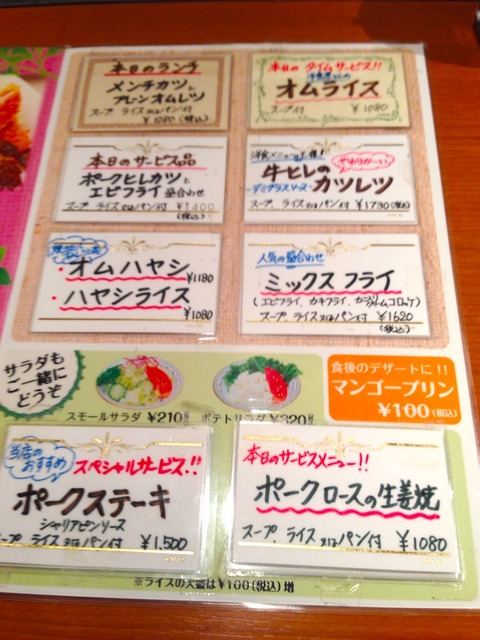 本日のランチ
メンチカツと
プレーンオムレツ
スープ、ライス又はパン付
¥1080(税込)
本日の タイムサービス!!
洋食屋さんの
オムライス
スープ付 ¥1080
本日のサービス品
ポークヒレカツと
エビフライ 盛合わせ
スープ ライス又はパン付 ¥1400
(税込)
洋食メニューの王様!
やわらか〜い
牛ヒレの
カツレツ
-デミグラスソース-
スープ、ライス又はパン付 ¥1730(税込)
・オムハヤシ ¥1180
・ハヤシライス
¥1080
人気の盛合わせ
ミックスフライ
(エビフライ、カキフライ、カニクリームコロッケ)
スープ、ライス又はパン付 ¥1620
(税込)
サラダも
ご一緒に
どうぞ
スモールサラダ ¥210
ポテトサラダ ¥320
食後のデザートに!!
マンゴープリン
¥100(税込)
当店の
おすすめ
スペシャルサービス!!
ポークステーキ
シャリアピンソース
スープ、ライス又はパン付 ¥1,500
本日のサービスメニュー!!
ポークロースの生姜焼
スープ、ライス又はパン付 ¥1080
※ライスの大盛は¥100(税込)増